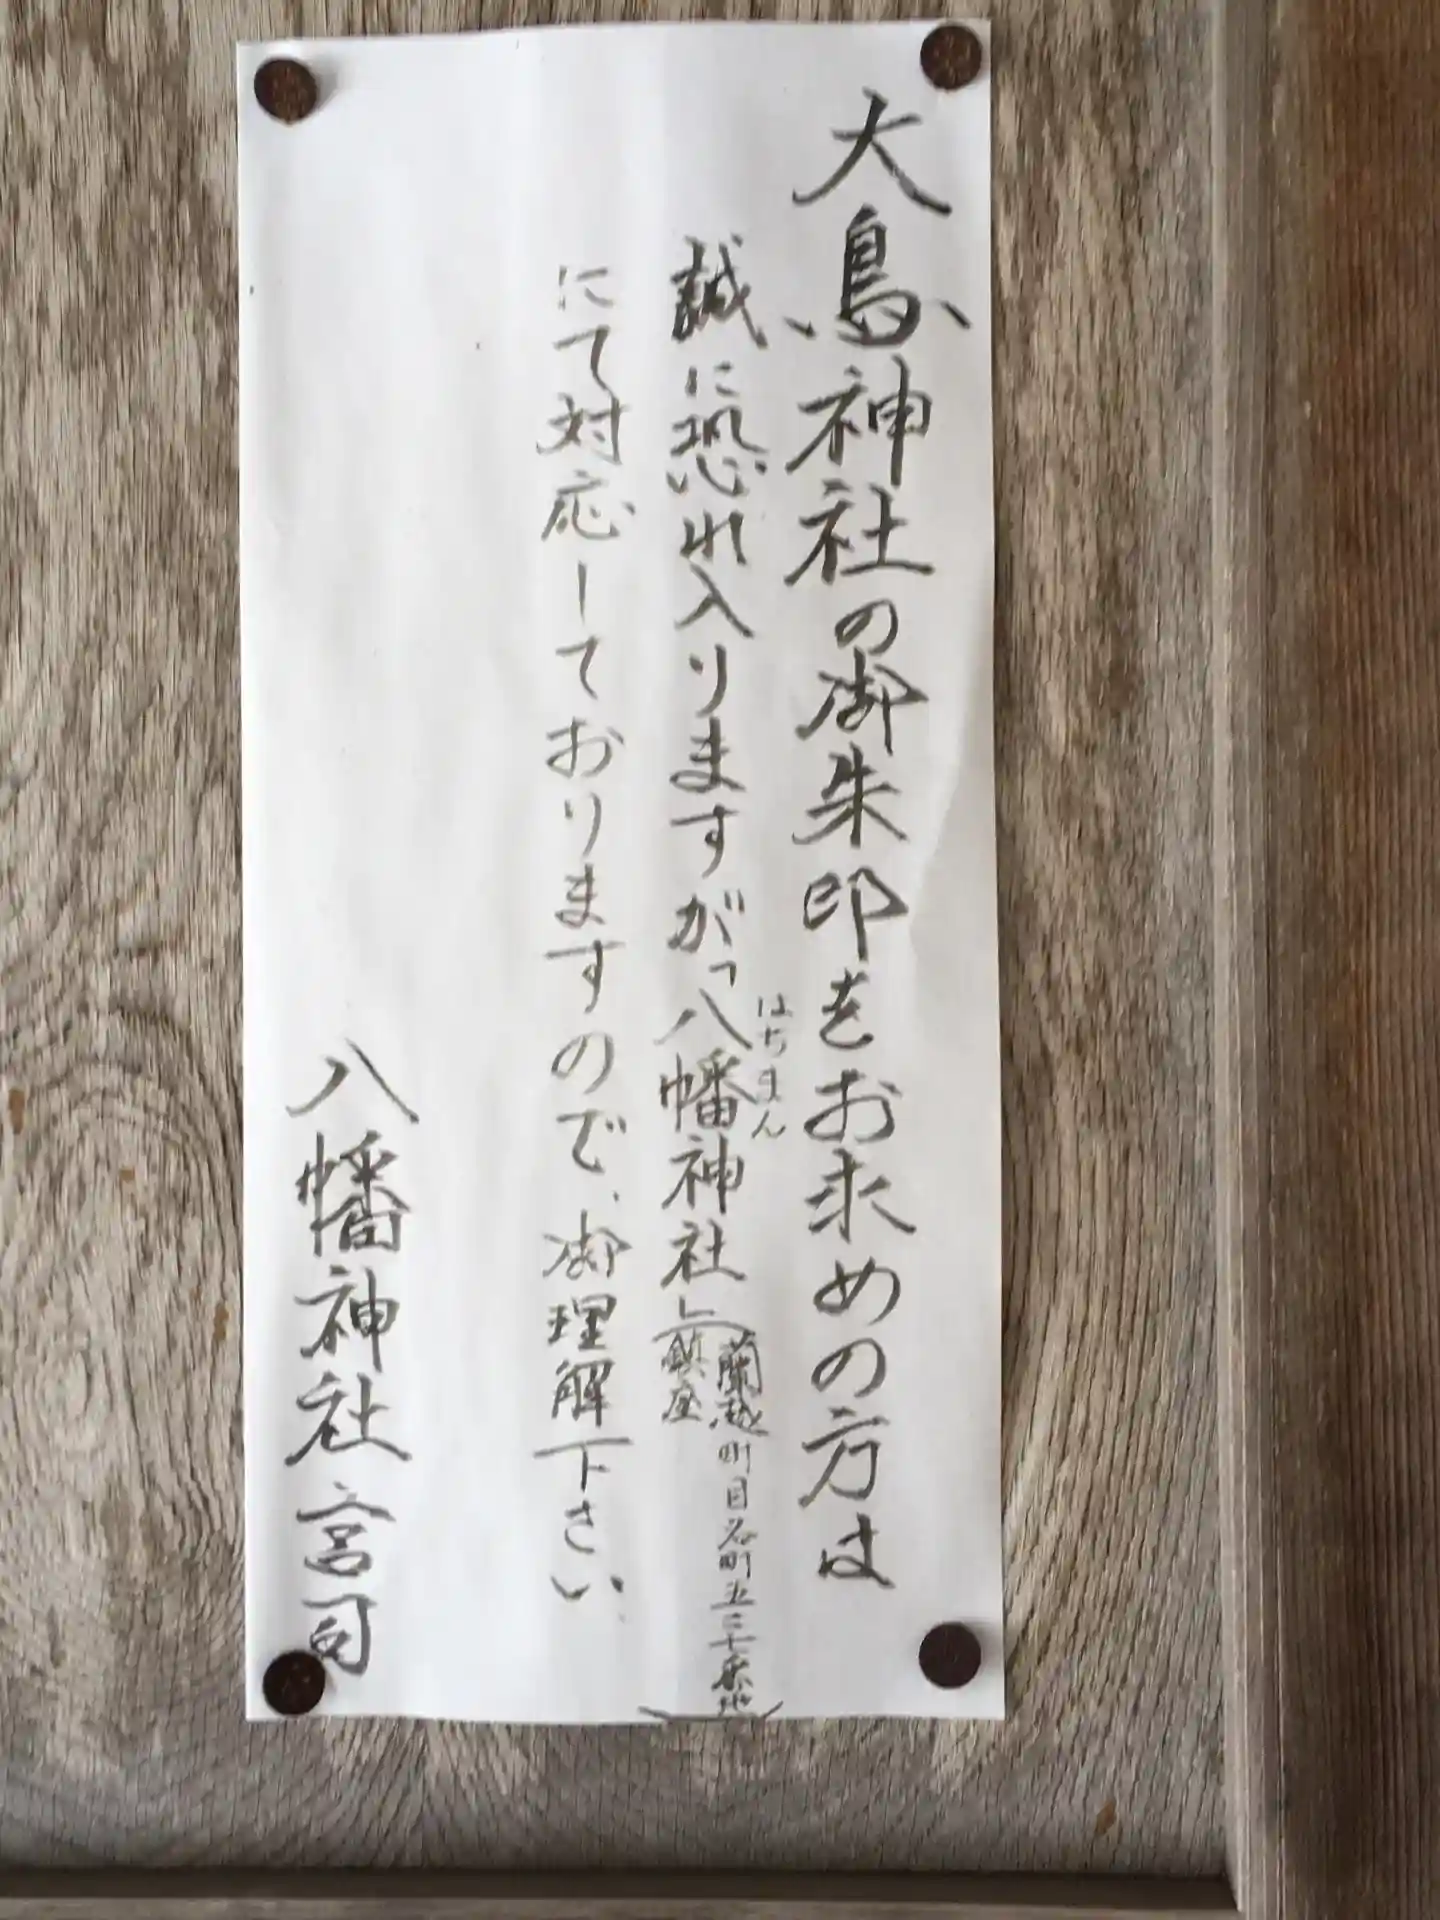 大鳥神社の御朱印をお求めの方は
誠に恐れ入りますが「八幡神社」
はちまん
(蘭越町目名町五三七番地
鎮座)
にて対応しておりますので、御理解下さい
八幡神社 宮司